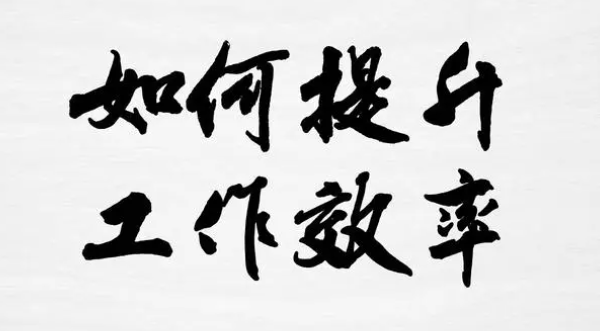 如何提升
工作效率